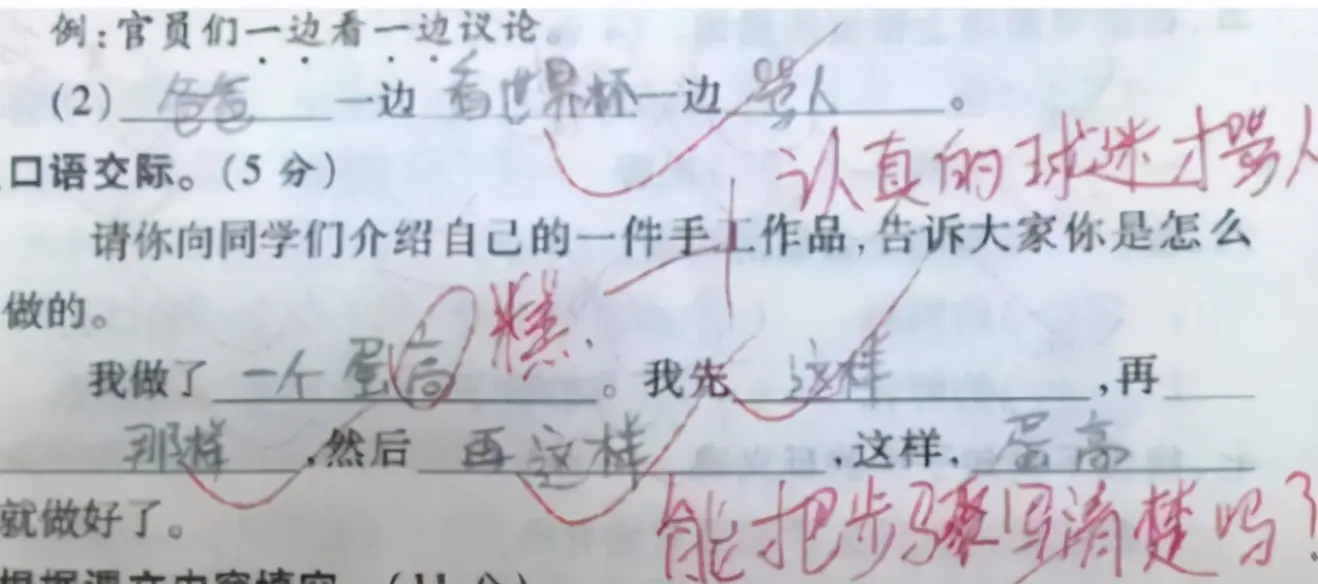 例:官员们一边看一边议论。
(2) 爸爸 一边 看世界杯 一边 骂人 。
认真的球迷才骂人
口语交际。(5 分)
请你向同学们介绍自己的一件手工作品,告诉大家你是怎么
做的。
糕
我做了 一个蛋高 。我先 这样 ,再
那样 ,然后 再这样 ,这样, 蛋高
就做好了。
能把步骤写清楚吗?
根据课文内容填空。(11 分)